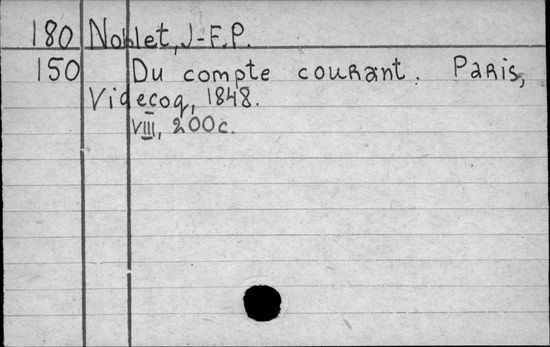 180 Noblet, J-F.P.
150 Du compte courant. Paris,
Videcoq, 1848.
VIII, 200c.